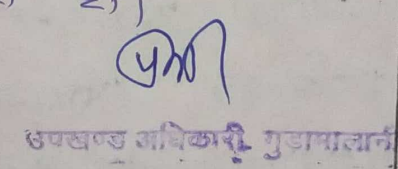 उपखण्ड अधिकारी गुडामालानी